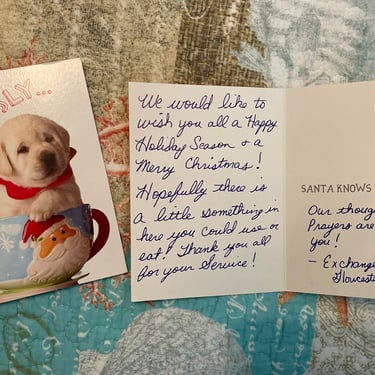 SLY...
We would like to
wish you all a Happy
Holiday Season & a
Merry Christmas!
Hopefully there is
a little something in
here you could use or
eat! Thank you all
for your Service!
SANTA KNOWS
Our
Prayers are
You!
- Exchange